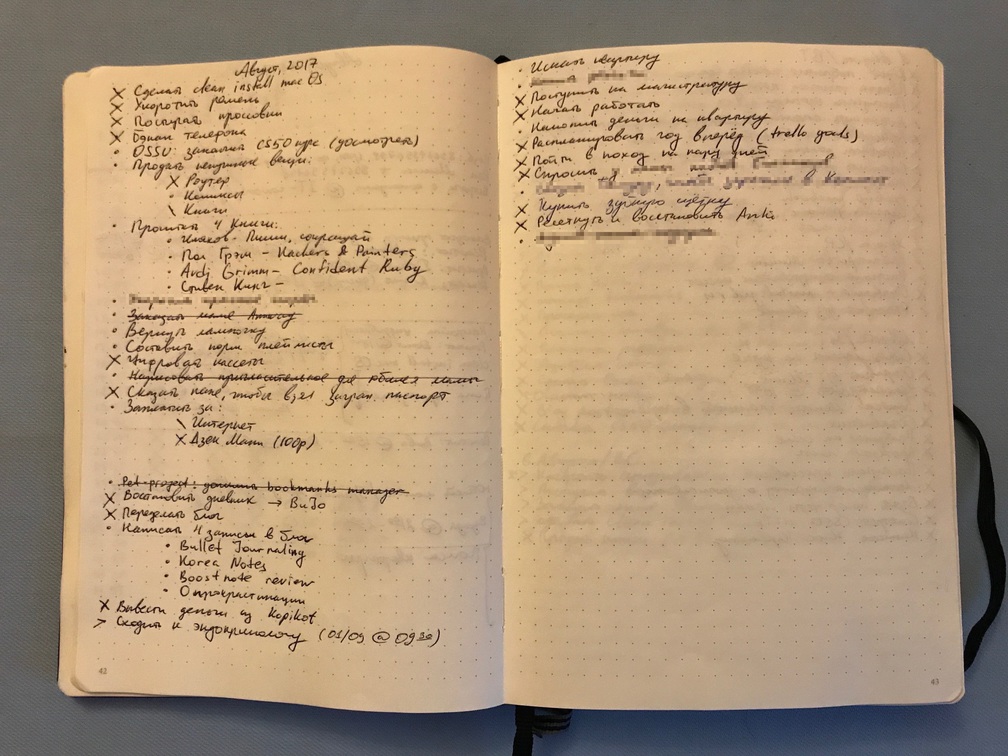 Август, 2017
× Сделать clean install mac OS
× Укоротить ремень
× Постирать кроссовки
× Бэкап телефона
• OSSU: закончить CS50 курс (досмотреть)
• Продать ненужные вещи:
× Роутер
• Комиксы
\ Книги
• Прочитать 4 книги:
• Ильяхов - Пиши, сокращай
• Пол Грэм - Hackers & Painters
• Avdi Grimm - Confident Ruby
• Стивен Кинг -
• Заказать маме Amway
• Вернуть лампочку
• Составить норм плейлисты
× Цифровать кассеты
• Нарисовать пригласительное для юбилея мамы
× Сказать папе, чтобы взял загран. паспорт
• Заплатить за:
\ Интернет
× Дзен Мани (100р)
• Pet-project: допилить bookmarks manager
× Востановить дневник → BuJo
× Переделать блог
• Написать 4 записи в блог
• Bullet Journaling
• Korea Notes
• Boostnote review
• О прокрастинации
× Вывести деньги из Kopikot
> Сходить к эндокринологу (01/09 @ 09:30)
42
• Искать квартиру
× Поступить на магистратуру
× Начать работать
• Накопить деньги на квартиру
× Распланировать год вперёд (trello goals)
× Пойти в поход на пару дней
× Спросить у
× Купить зубную щётку
× Ресетнуть и восстановить Anki
•
43